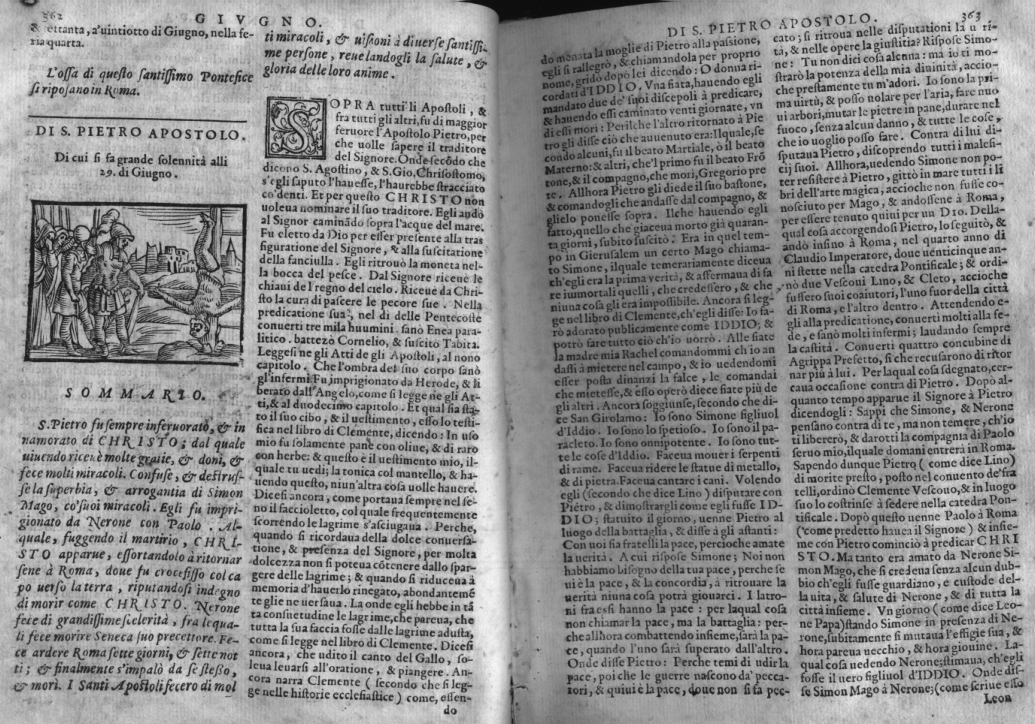 362
GIVGNO.
& ettanta, a'uintiotto di Giugno, nella fe-
ria quarta.
L'ossa di questo santissimo Pontefice
si riposano in Roma.
DI S. PIETRO APOSTOLO.
Di cui si fa grande solennità alli
29. di Giugno.
SOMMARIO.
S. Pietro fu sempre inferuorato, & in
namorato di CHRISTO; dal quale
uiuendo riceuè molte gratie, & doni, &
fece molti miracoli. Confuse, & destrus-
se la superbia, & arrogantia di Simon
Mago, co'suoi miracoli. Egli fu impri-
gionato da Nerone con Paolo. Al
quale, fuggendo il martirio, CHRI-
STO apparue, essortandolo à ritornar
sene à Roma, doue fu crocefisso col ca
po uerso la terra, riputandosi indegno
di morir come CHRISTO. Nerone
fece di grandissime sceleritá, fra lequa-
li fece morire Seneca suo precettore. Fe-
ce ardere Roma sette giorni, & sette not
ti; & finalmente s'impalò da se stesso,
& morì. I Santi Apostoli fecero di mol
ti miracoli, & uisioni à diuerse santissi-
me persone, reuelandogli la salute, &
gloria delle loro anime.
SOPRA tutti li Apostoli, &
fra tutti gli altri, fu di maggior
feruore l'Apostolo Pietro, per
che uolle sapere il traditore
del Signore. Onde secōdo che
dicono S. Agostino, & S. Gio. Chrisostomo,
s'egli saputo l'hauesse, l'haurebbe stracciato
co'denti. Et per questo CHRISTO non
uoleua nominare il suo traditore. Egli andò
al Signor caminādo sopra l'acque del mare.
Fu eletto da Dio per esser presente alla tras
figuratione del Signore, & alla suscitatione
della fanciulla. Egli ritrouò la moneta nel-
la bocca del pesce. Dal Signore riceuè le
chiaui del regno del cielo. Riceue da Chri-
sto la cura di pascere le pecore sue. Nella
predicatione sua, nel dì delle Pentecoste
conuertì tre mila huumini. sanò Enea para-
litico. battezò Cornelio, & suscitò Tabita.
Leggesi ne gli Atti de gli Apostoli, al nono
capitolo. Che l'ombra del suo corpo sanò
gl'infermi. Fu imprigionato da Herode, & li
berato dall'Angelo, come si legge ne gli At-
ti, & al duodecimo capitolo. Et qual sia sta-
to il suo cibo, & il uestimento, esso lo testi-
fica nel libro di Clemente, dicendo: In uso
mio fu solamente pane con oliue, & di raro
con herbe: & questo è il uestimento mio, il-
quale tu uedi; la tonica col mantello, & ha-
uendo questo, niun'altra cosa uolle hauere.
Dicesi ancora, come portaua sempre nel se-
no il faccioletto, col quale frequentemente
scorrendo le lagrime s'asciugaua. Perche,
quando si ricordaua della dolce conuersa-
tione, & presenza del Signore, per molta
dolcezza non si poteua cōtenere dallo spar-
gere delle lagrime; & quando si riduceua à
memoria d'hauerlo rinegato, abondantemē
te glie ne uersaua. La onde egli hebbe in tā
ta consuetudine le lagrime, che pareua, che
tutta la sua faccia fosse dalle lagrime adusta,
come si legge nel libro di Clemente. Dicesi
ancora, che udito il canto del Gallo, so-
leua leuarsi all'oratione, & piangere. An-
cora narra Clemente (secondo che si leg-
ge nelle historie ecclesiastice) come, essen-
do
DI S. PIETRO APOSTOLO.
363
do menata la moglie di Pietro alla passione,
egli si rallegrò, & chiamandola per proprio
nome, gridò dopo lei dicendo: O donna ri-
cordati d'IDDIO. Vna fiata, hauendo egli
mandato due de' suoi discepoli à predicare,
& hauendo essi caminato uenti giornate, un
di essi morì: Perilche l'altro ritornato à Pie
tro gli disse ciò che auuenuto era: Ilquale, se
condo alcuni, fu il beato Martiale, ò il beato
Materno: & altri, che'l primo fu il beato Frō
tone, & il compagno, che morì, Gregorio pre
te. Allhora Pietro gli diede il suo bastone,
& comandogli che andasse dal compagno, &
glielo ponesse sopra. Ilche hauendo egli
fatto, quello che giaceua morto già quaran-
ta giorni, subito suscitò. Era in quel tem-
po in Gierusalem un certo Mago chiama-
to Simone, ilquale temerariamente diceua
ch'egli era la prima uerità, & affermaua di fa
re immortali quelli, che credessero, & che
niuna cosa gli era impossibile. Ancora si leg-
ge nel libro di Clemente, ch'egli disse: Io sa-
rò adorato publicamente come IDDIO; &
potrò fare tutto ciò ch'io uorrò. Alle fiate
la madre mia Rachel comandommi ch'io an
dassi à mietere nel campo, & io uedendomi
esser posta dinanzi la falce, le comandai
che mietesse, & esso operò diece fiate più de
gli altri. Ancora soggiunse, secondo che di-
ce San Girolamo. Io sono Simone figliuol
d'Iddio. Io sono lo spetioso. Io sono il pa-
racleto. Io sono onnipotente. Io sono tut-
te le cose d'Iddio. Faceua mouer i serpenti
di rame. Faceua ridere le statue di metallo,
& di pietra. Faceua cantare i cani. Volendo
egli (secondo che dice Lino) disputar con
Pietro, & dimostrargli come egli fusse ID-
DIO; statuito il giorno, uenne Pietro al
luogo della battaglia, & disse à gli astanti:
Con uoi sia fratelli la pace, percioche amate
la uerità. A cui rispose Simone; Noi non
habbiamo bisogno della tua pace, perche se
ui è la pace, & la concordia, à ritrouare la
uerità niuna cosa potrà giouarci. I latro-
ni fra essi hanno la pace: per laqual cosa
non chiamar la pace, ma la battaglia: per-
che allhora combattendo insieme, sarà la pa-
ce, quando l'uno sarà superato dall'altro.
Onde disse Pietro: Perche temi di udir la
pace, poi che le guerre nascono da' pecca-
tori, & quiui è la pace, doue non si fa pec-
cato; si ritroua nelle disputationi la ueri-
tà, & nelle opere la giustitia? Rispose Simo-
ne: Tu non dici cosa alcuna: ma io ti mo-
strarò la potenza della mia diuinità, accio-
che prestamente tu m'adori. Io sono la pri-
ma uirtù, & posso uolar per l'aria, fare nuo
ui arbori, mutar le pietre in pane, durare nel
fuoco, senza alcun danno, & tutte le cose,
che io uoglio posso fare. Contra di lui di-
sputaua Pietro, discoprendo tutti i malefi-
cij suoi. Allhora, uedendo Simone non po-
ter resistere à Pietro, gittò in mare tutti i li
bri dell'arte magica, accioche non fusse co-
nosciuto per Mago, & andossene à Roma,
per essere tenuto quiui per un DIO. Della-
qual cosa accorgendosi Pietro, lo seguitò, &
andò insino à Roma, nel quarto anno di
Claudio Imperatore, doue uenticinque an-
ni stette nella catedra Pontificale; & ordi-
nò due Vescoui Lino, & Cleto, accioche
fussero suoi coaiutori, l'uno fuor della città
di Roma, e l'altro dentro. Attendendo e-
gli alla predicatione, conuertì molti alla fe-
de, e sanò molti infermi; laudando sempre
la castità. Conuertì quattro concubine di
Agrippa Prefetto, sì che recusarono di ritor
nar più à lui. Per laqual cosa sdegnato, cer-
caua occasione contra di Pietro. Dopo al-
quanto tempo apparue il Signore à Pietro
dicendogli: Sappi che Simone, & Nerone
pensano contra di te, ma non temere, ch'io
ti libererò, & darotti la compagnia di Paolo
seruo mio, ilquale domani entrerà in Roma.
Sapendo dunque Pietro (come dice Lino)
di morire presto, posto nel conuento de'fra
telli, ordinò Clemente Vescouo, & in luogo
suo lo costrinse à sedere nella catedra Pon-
tificale. Dopò questo uenne Paolo à Roma
(come predetto haueа il Signore) & insie-
me con Pietro cominciò à predicar CHRI
STO. Ma tanto era amato da Nerone Si-
mon Mago, che si credeua senza alcun dub-
bio ch'egli fusse guardiano, e custode del-
la uita, & salute di Nerone, & di tutta la
città insieme. Vn giorno (come dice Leo-
ne Papa) stando Simone in presenza di Ne-
rone, subitamente si mutaua l'effigie sua, &
hora pareua uecchio, & hora giouine. La-
qual cosa uedendo Nerone; stimaua, ch'egli
fosse il uero figliuol d'IDDIO. Onde dis-
se Simon Mago à Nerone; (come scriue esso
Leon